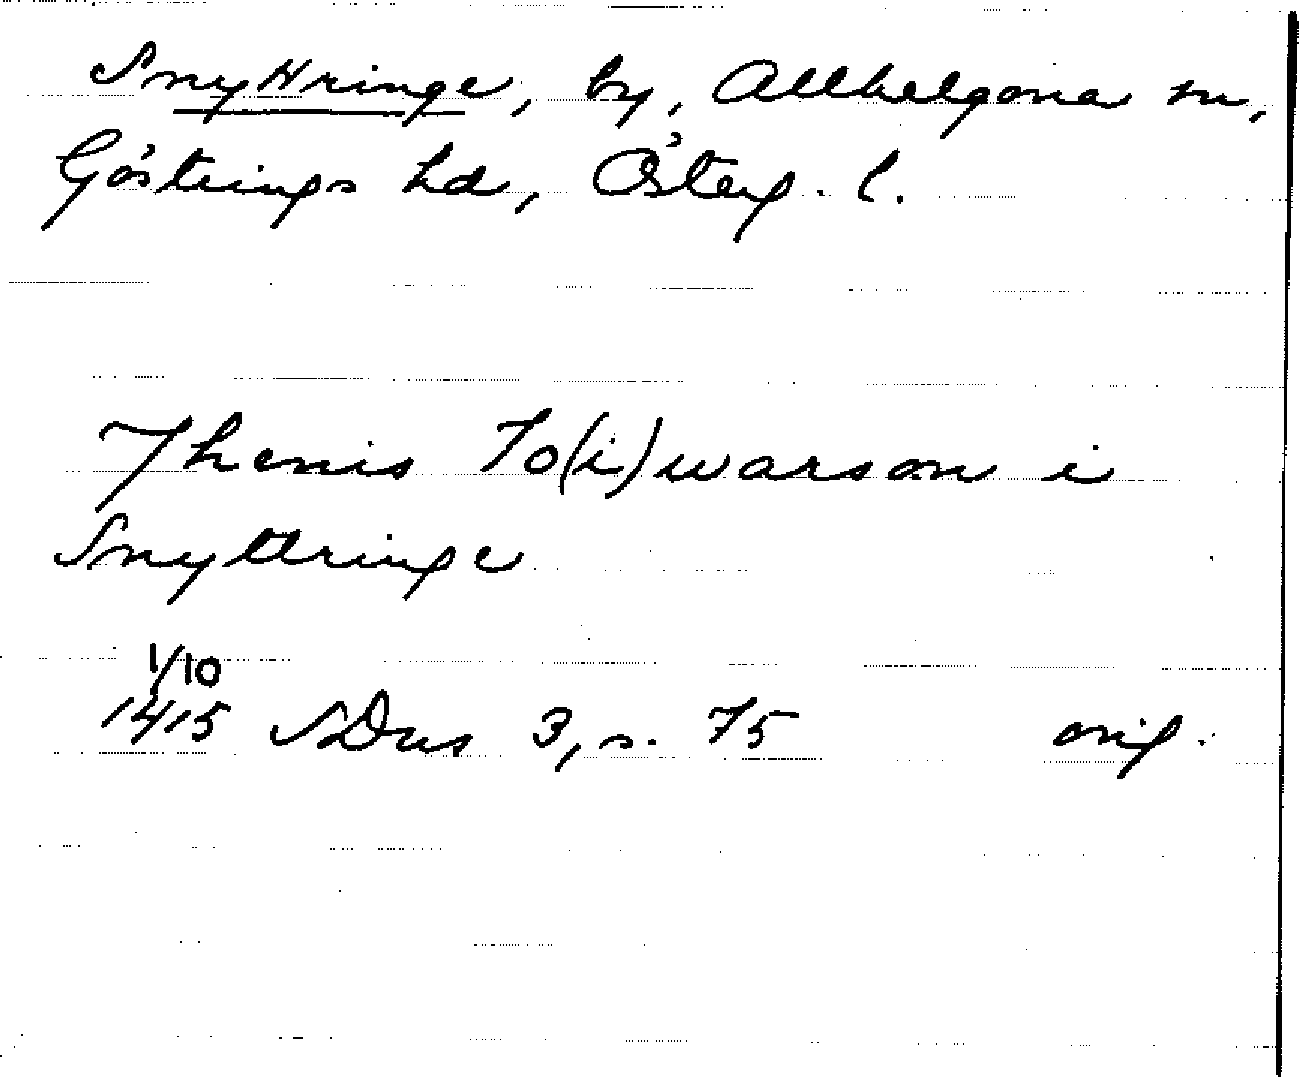 Snyttringe, by, Allhelgona sn,
Göstrings hd, Österg. l.
Thenis To(i)warson i
Snyttringe
1/10
1415 SDns 3, s. 75 orig.